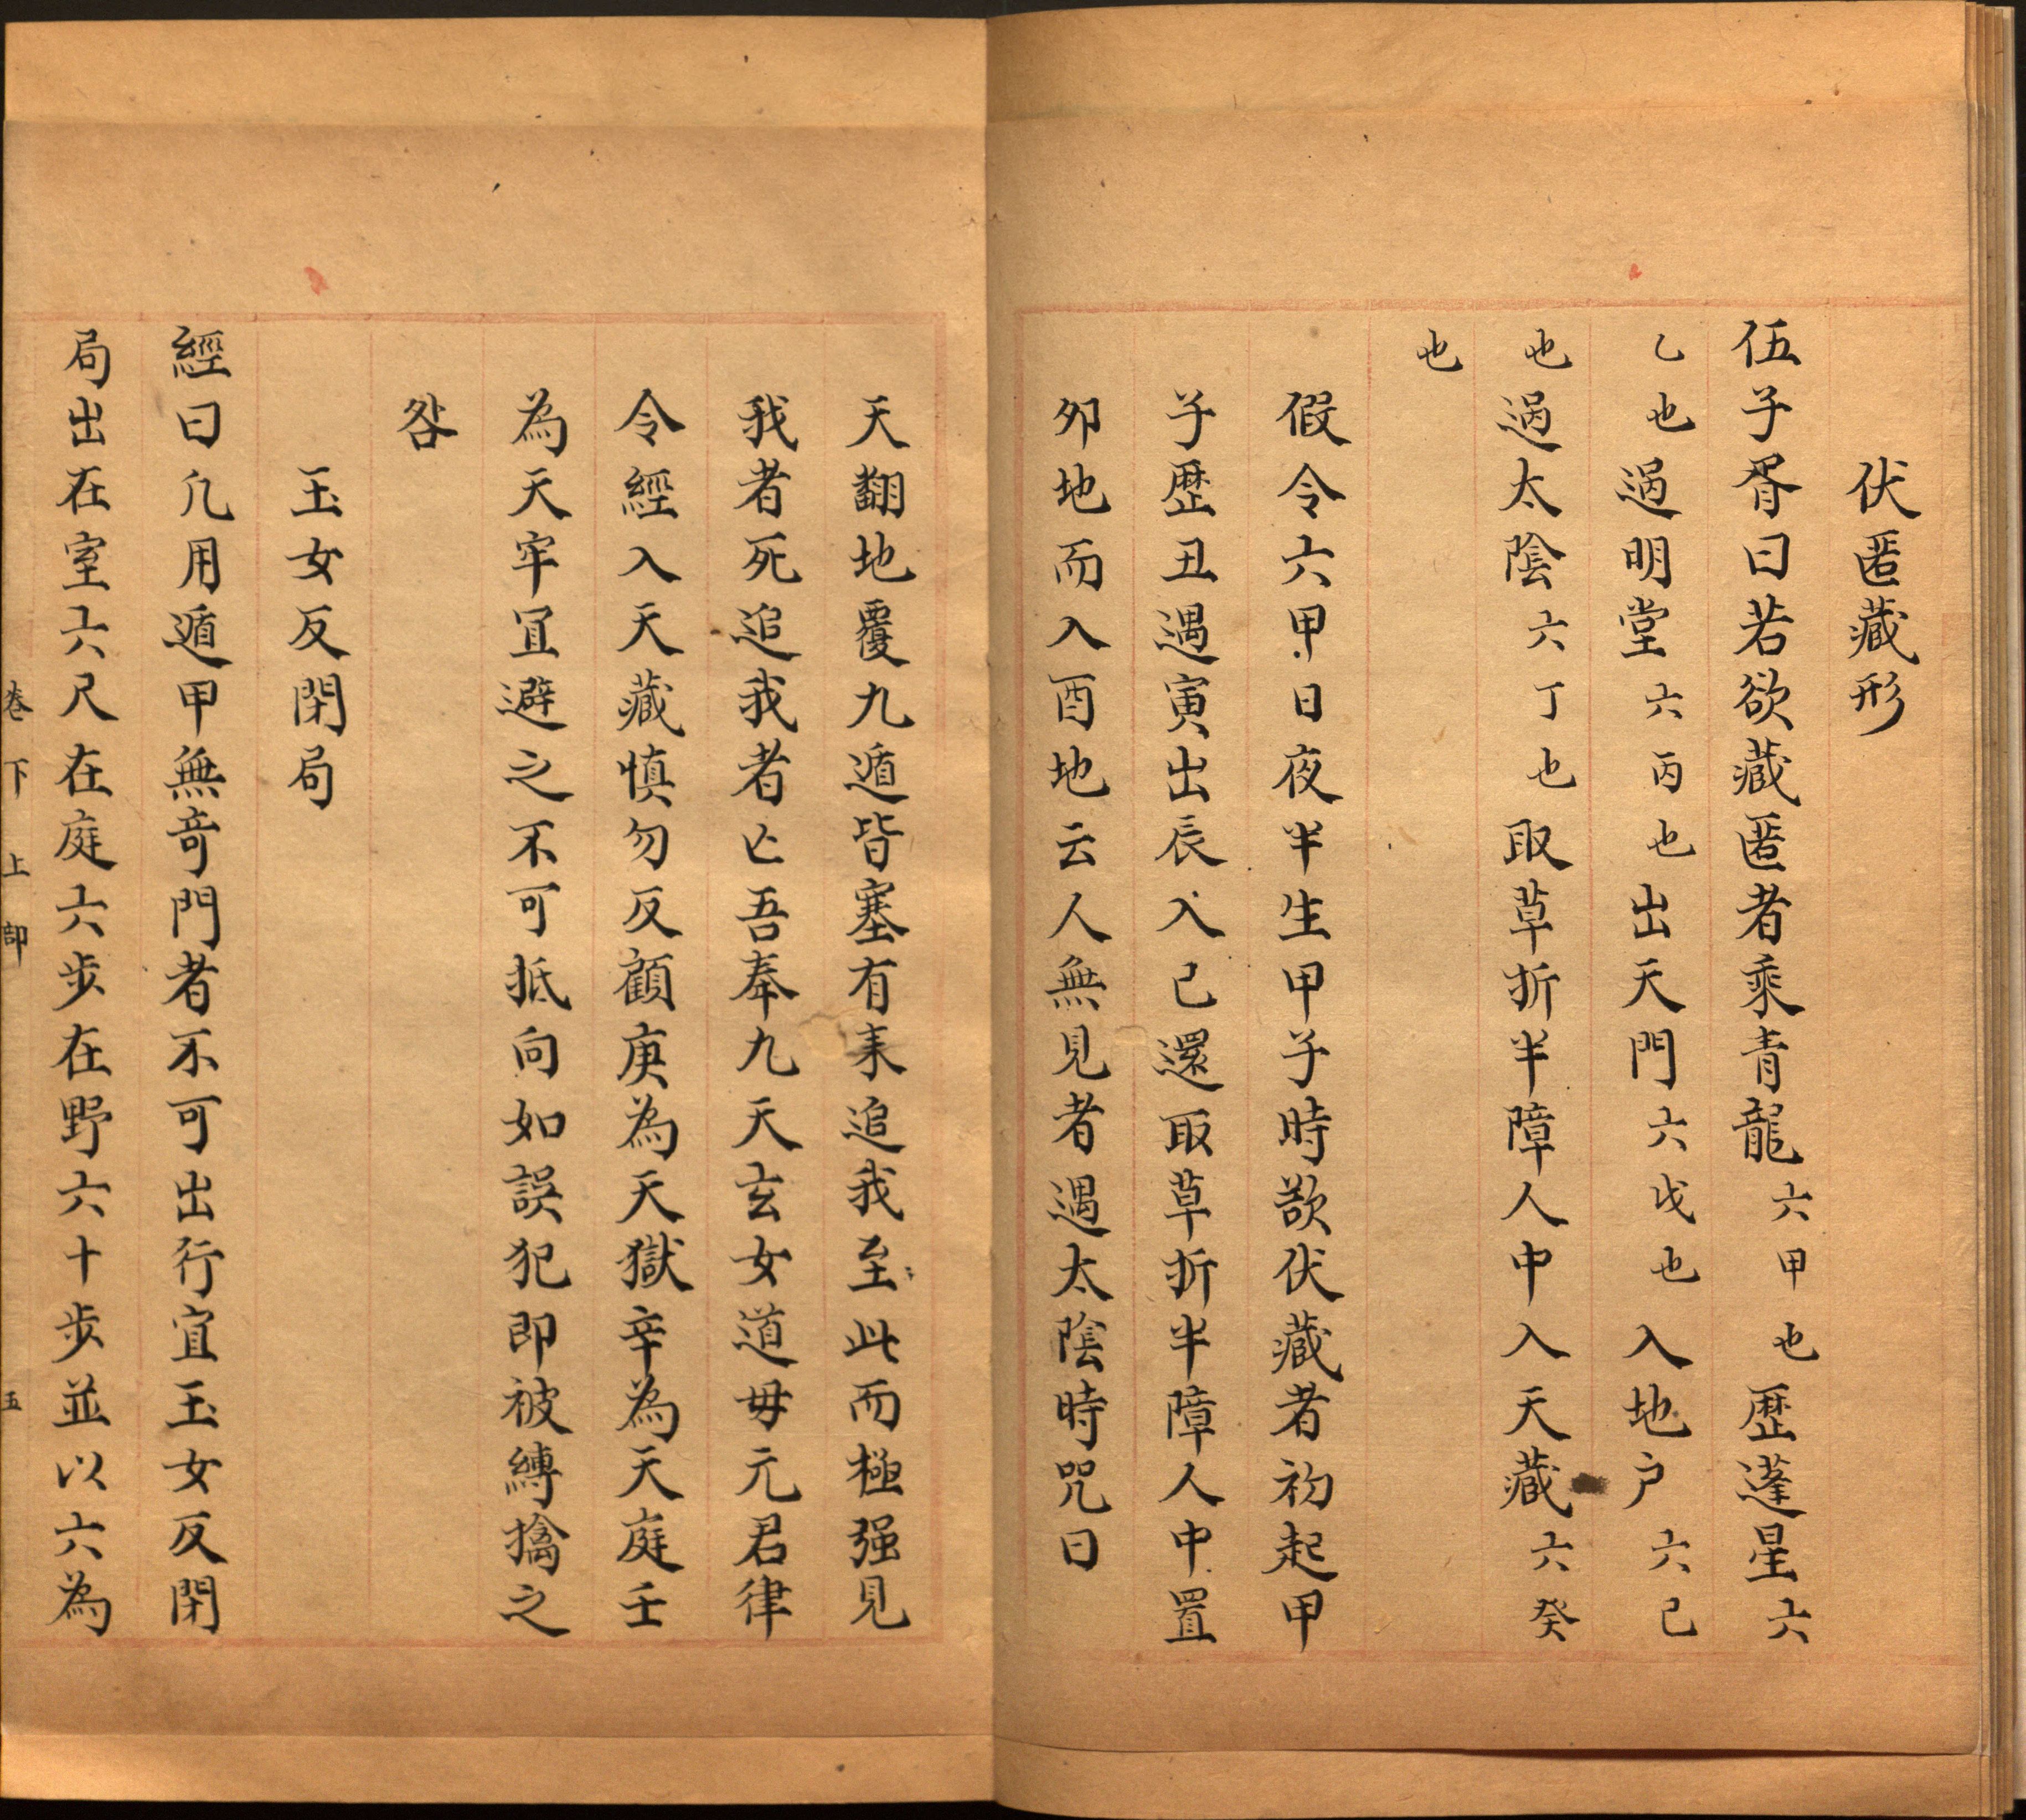 伏匿藏形
伍子胥曰若欲藏匿者乘青龍六甲也歷蓬星六
乙也過明堂六丙也出天門六戊也入地戶六己
也過太陰六丁也取草折半障人中入天藏六癸
也
假令六甲日夜半生甲子時欲伏藏者初起甲
子歷丑遇寅出辰入巳還取草折半障人中置
夘地而入酉地云人無見者遇太陰時咒曰
天翻地覆九遁皆塞有来追我至此而極强見
我者死追我者亾吾奉九天玄女道毋元君律
令經入天藏慎勿反顧庚為天獄辛為天庭壬
為天牢冝避之不可抵向如誤犯即被縛擒之
咎
玉女反閉局
經曰凡用遁甲無竒門者不可出行宜玉女反閉
局出在室六尺在庭六步在野六十步並以六為
卷下 上 五